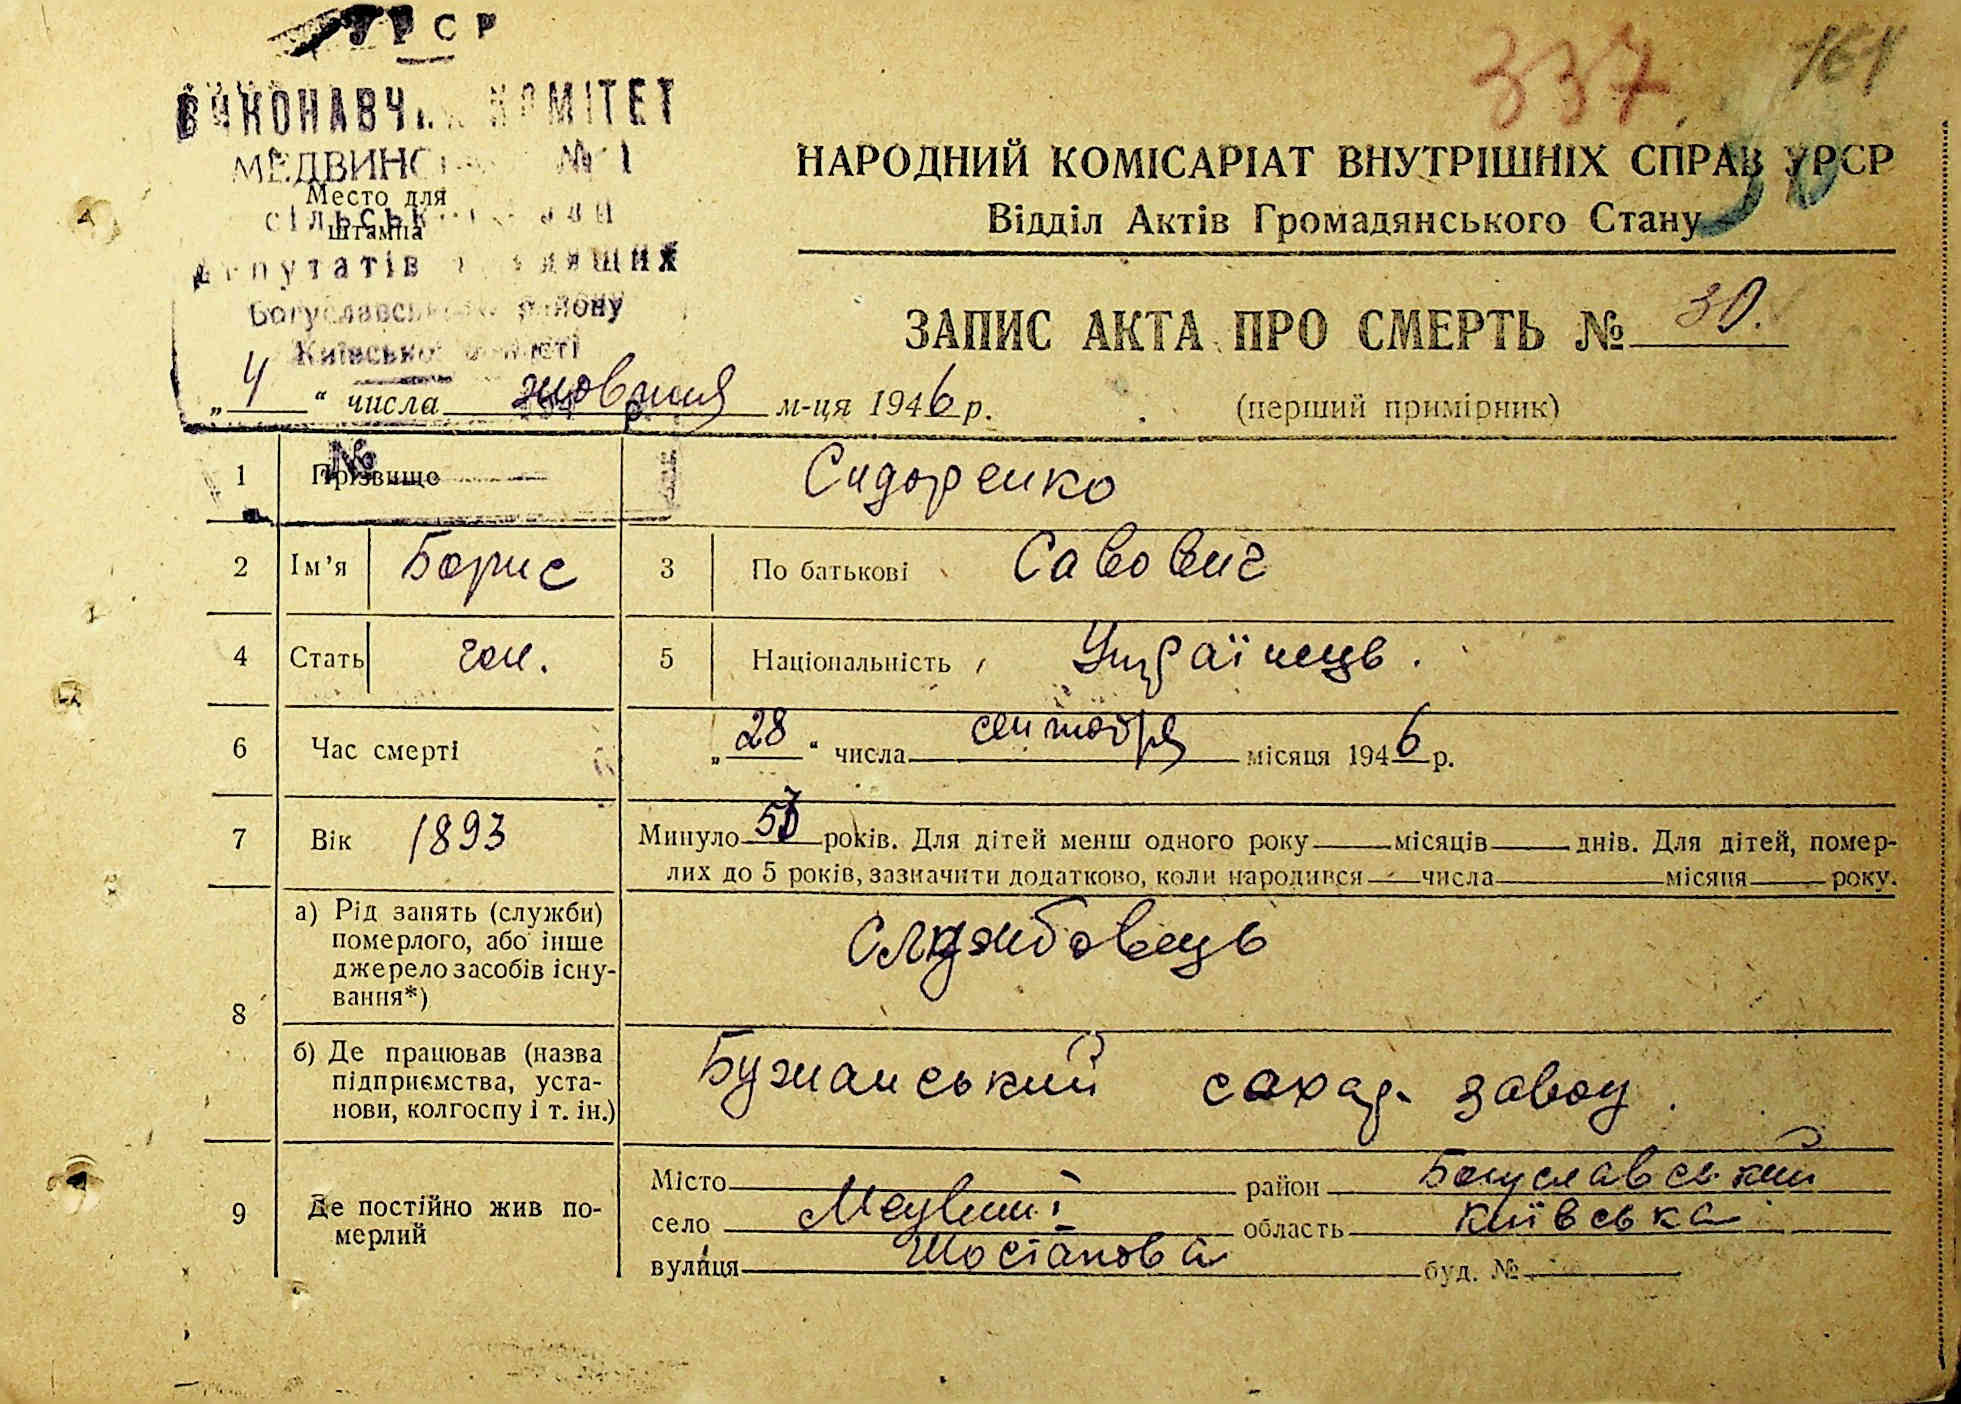 УРСР
ВИКОНАВЧИЙ КОМІТЕТ
МЕДВИНСЬ № 1
Место для
штампа
сільської ради
депутатів трудящих
Богуславського району
Київської області
№
337
161
30
НАРОДНИЙ КОМІСАРІАТ ВНУТРІШНІХ СПРАВ УРСР
Відділ Актів Громадянського Стану
ЗАПИС АКТА ПРО СМЕРТЬ № 30.
„ 4 “ числа жовтня м-ця 1946 р.
(перший примірник)
1 Прізвище Сидоренко
2 Ім’я Борис 3 По батькові Савович
4 Стать чол. 5 Національність Українець.
6 Час смерті „ 28 “ числа сентября місяця 1946 р.
7 Вік 1893 Минуло років. Для дітей менш одного року місяців днів. Для дітей, помер-
лих до 5 років, зазначити додатково, коли народився числа місяця року.
8 а) Рід занять (служби)
померлого, або інше
джерело засобів існу-
вання*)
Службовець
б) Де працював (назва
підприємства, уста-
нови, колгоспу і т. ін.)
Бужанський сахар. завод.
9 Де постійно жив по-
мерлий
Місто район Богуславський
село Медвин область Київська
вулиця буд. №